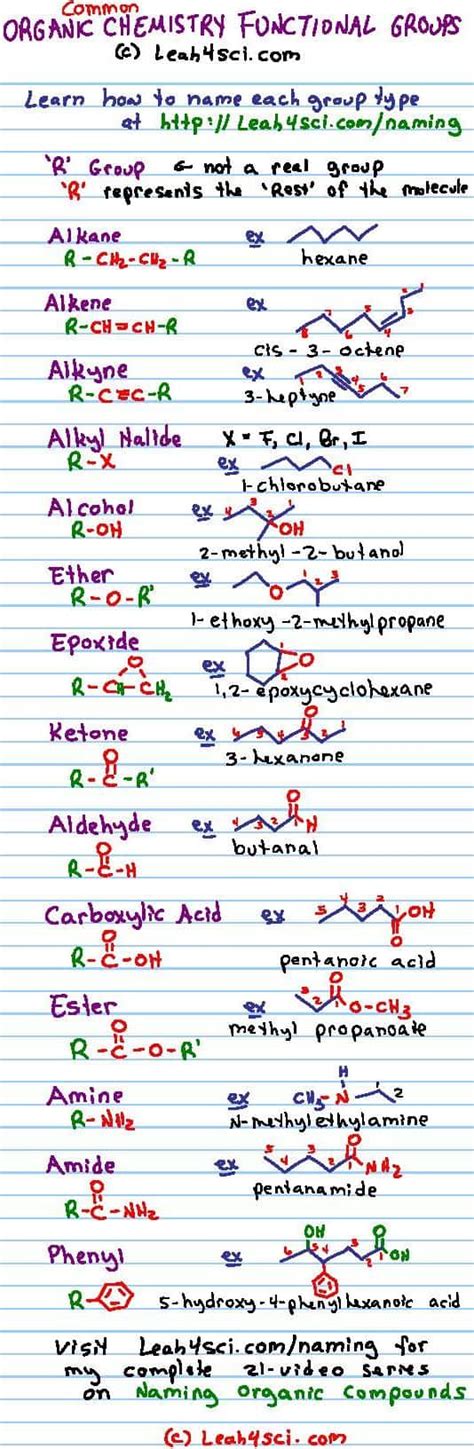 Common
ORGANIC CHEMISTRY FUNCTIONAL GROUPS
(c) Leah4sci.com
Learn how to name each group type
at http://Leah4sci.com/naming
'R' Group ← not a real group
'R' represents the 'Rest' of the molecule
Alkane ex
R-CH2-CH2-R hexane
Alkene ex
R-CH=CH-R
8 7 6 5 4 3 2 1
cis-3-octene
Alkyne ex 1 2 3 4 5 6 7
R-C≡C-R 3-heptyne
Alkyl Halide X = F, Cl, Br, I
R-X ex Cl
1-chlorobutane
Alcohol ex 4 3 2 1
R-OH OH
2-methyl-2-butanol
Ether ex O 1 2 3
R-O-R'
1-ethoxy-2-methylpropane
Epoxide
O ex 1 2 O
R-CH-CH2 1,2-epoxycyclohexane
Ketone ex 6 5 4 3 2 1 O
O 3-hexanone
R-C-R'
Aldehyde ex 4 3 2 1 O H
O butanal
R-C-H
Carboxylic Acid ex 5 4 3 2 1 OH
O O
R-C-OH pentanoic acid
Ester ex 3 2 1 O O-CH3
O methyl propanoate
R-C-O-R'
Amine ex CH3-N 1 2
H
R-NH2 N-methylethylamine
Amide ex 5 4 3 2 1 O NH2
O pentanamide
R-C-NH2
Phenyl ex 6 5 4 3 2 1 OH O OH
R- 5-hydroxy-4-phenylhexanoic acid
Visit Leah4sci.com/naming for
my complete 21-video series
on Naming Organic Compounds
(c) Leah4sci.com